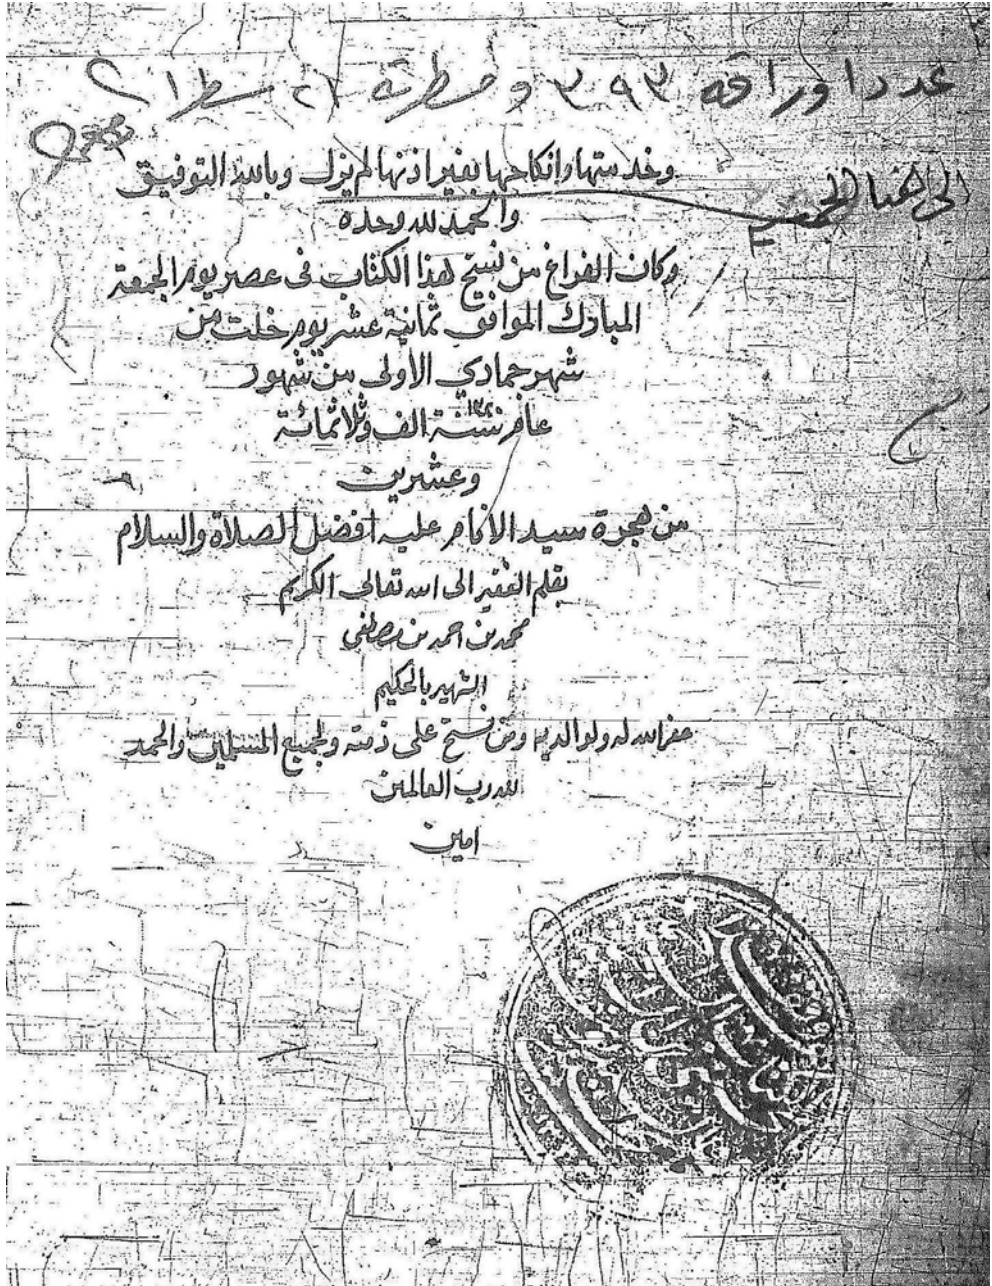 عدد اوراقه ٣٩٣ ومسطرته ٢٧ سطرا
وخدمتها وانكاحها بغير اذنها لم يزل وبالله التوفيق
الى هنا
والحمد لله وحده
وكان الفراغ من نسخ هذا الكتاب فى عصر يوم الجمعة
المبارك الموافق ثمانية عشر يوم خلت من
شهر جمادي الاولى من شهور
عام سنة الف وثلاثمائة
وعشرين
من هجرة سيد الانام عليه افضل الصلاة والسلام
بقلم الفقير الى الله تعالى الكريم
محمد بن احمد بن مصطفى
الشهير بالحكيم
غفر الله له ولوالديه ومن نسخ على ذمته ولجميع المسلمين والحمد
لله رب العالمين
امين